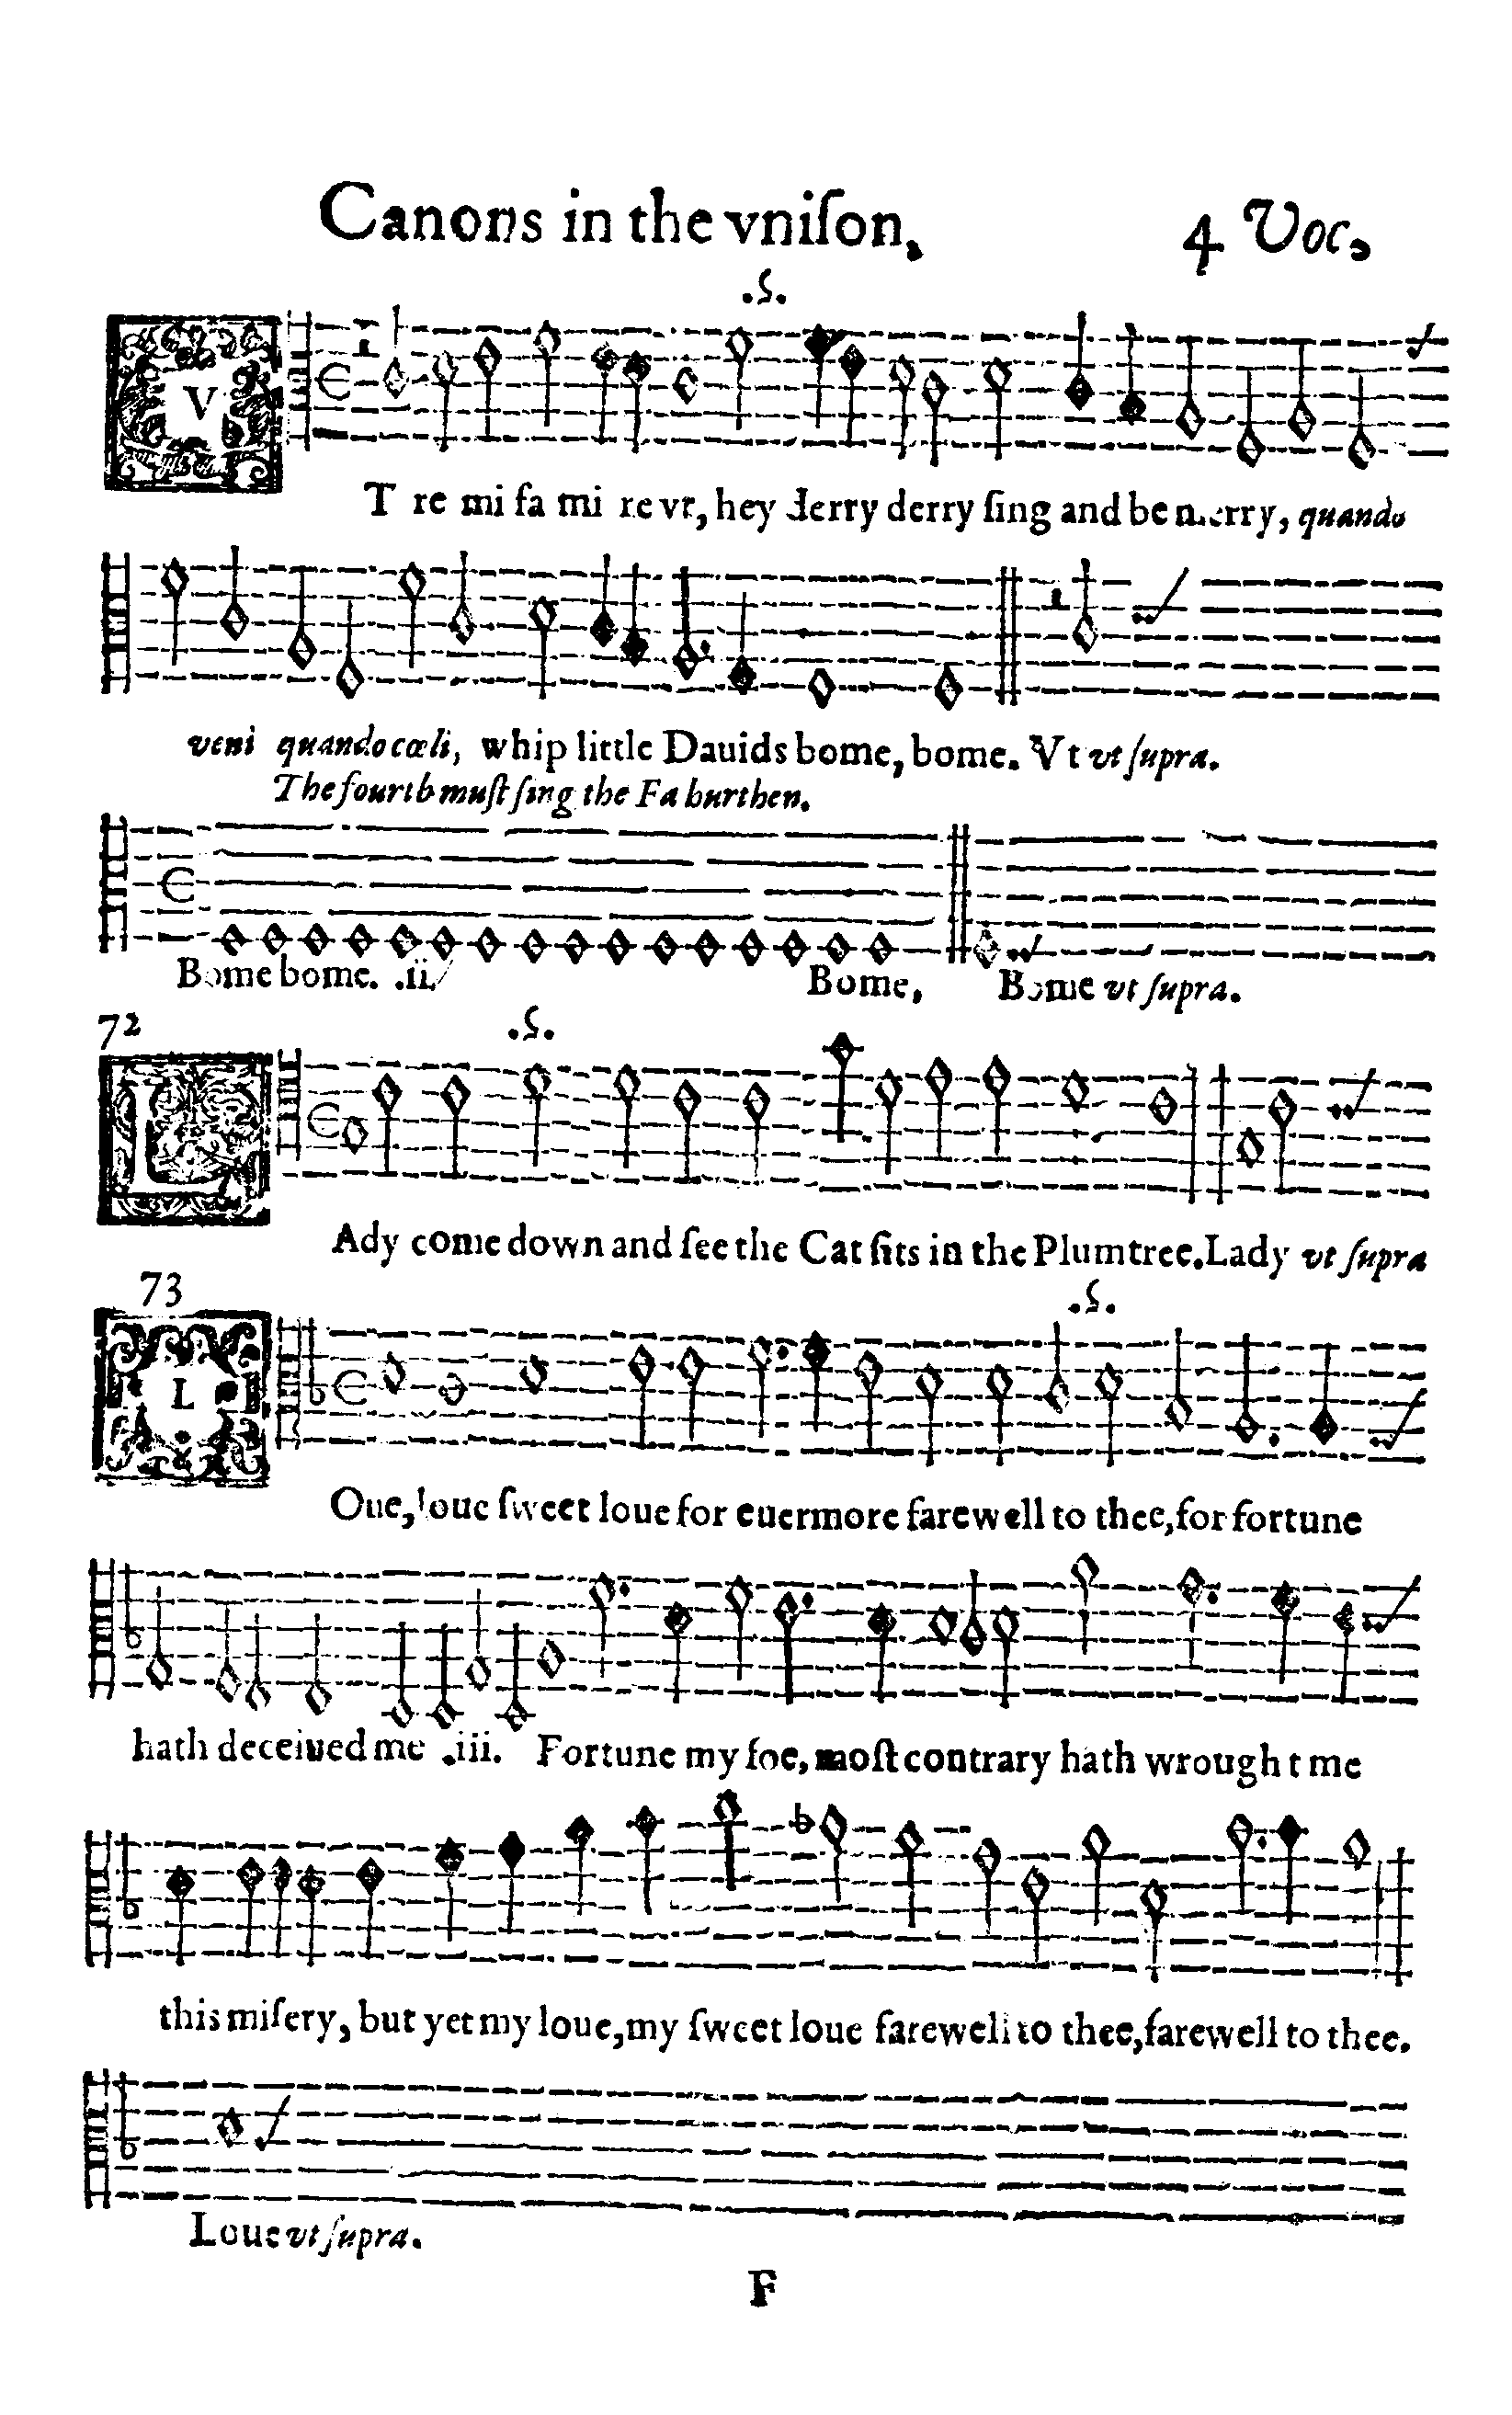 Canons in the vniſon, 4 Voc,
.S.
V
T re mi fa mi re vt, hey derry derry ſing and be merry, quando
veni quando cœli, whip little Dauids bome, bome. Vt vt ſupra.
The fourth muſt ſing the Fa burthen.
Bome bome. .ii. Bome, Bome vt ſupra.
72 .S.
L
Ady come down and ſee the Cat ſits in the Plumtree. Lady vt ſupra
73
.S.
L
Oue, loue ſweet loue for euermore farewell to thee, for fortune
hath deceiued me .iii. Fortune my foe, moſt contrary hath wrought me
this miſery, but yet my loue, my ſweet loue farewell to thee, farewell to thee.
Loue vt ſupra.
F